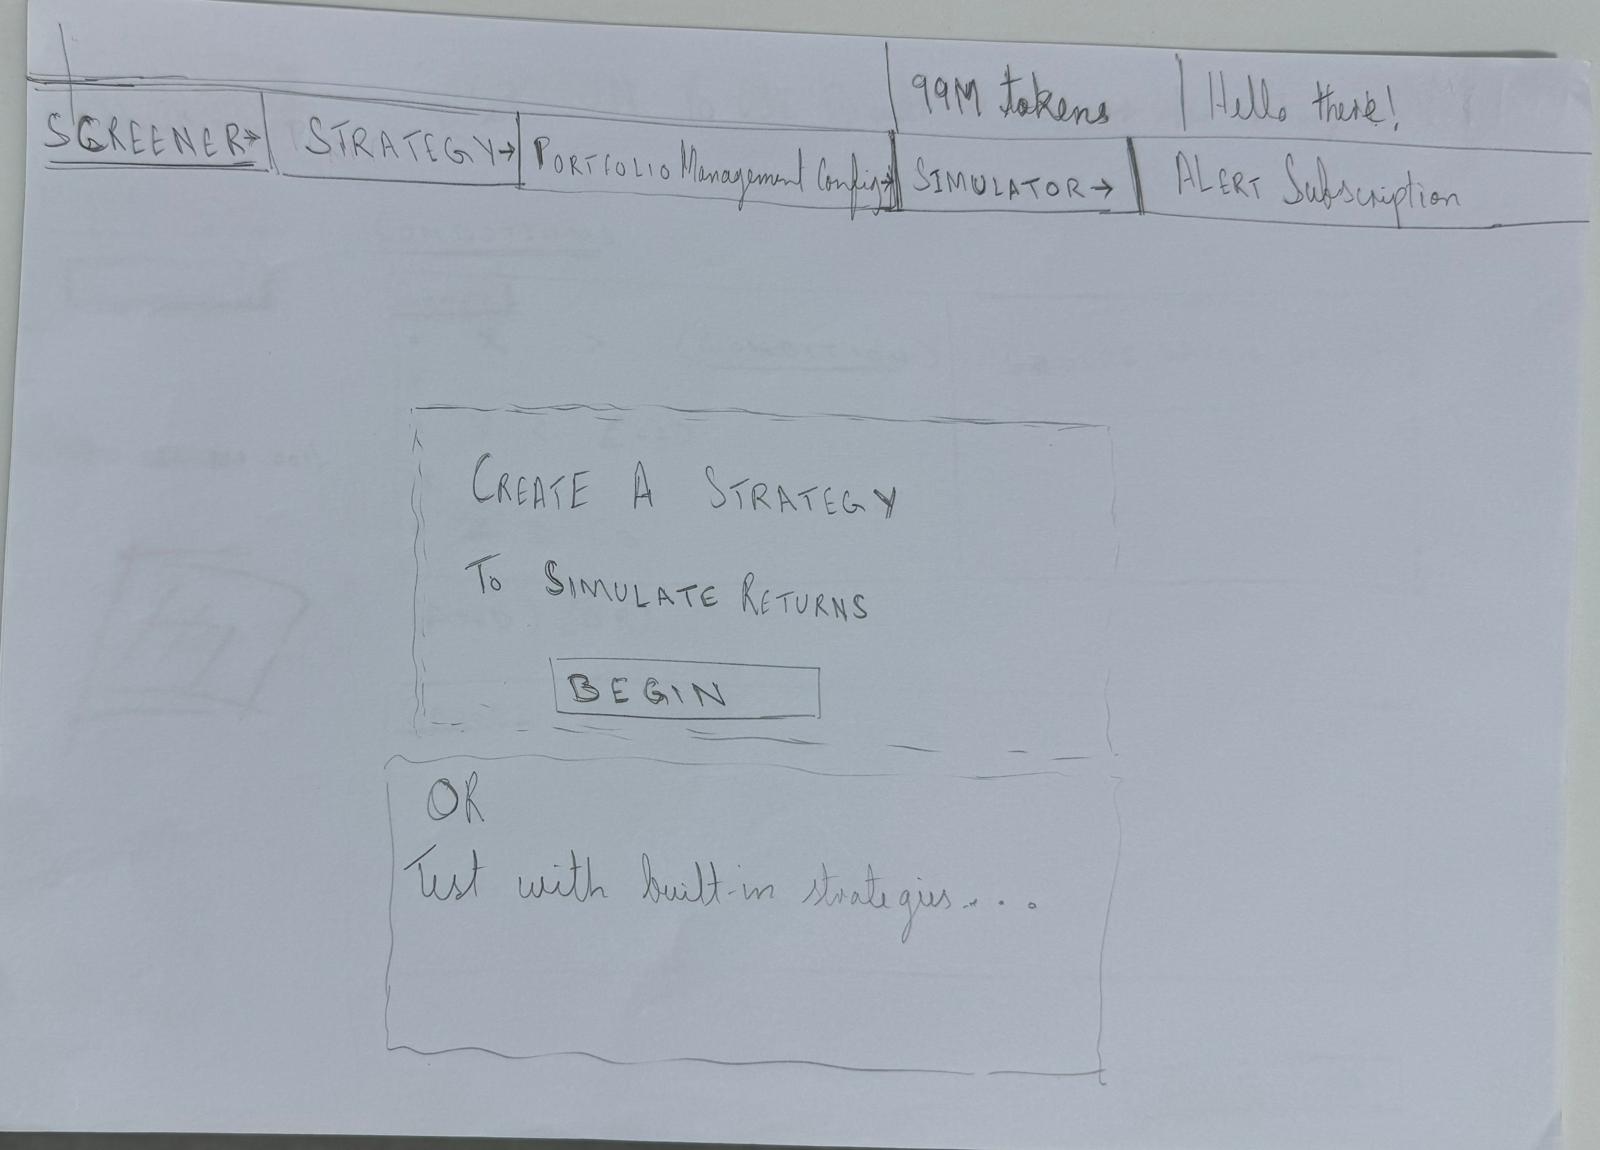 99M tokens
Hello there!
SCREENER→
STRATEGY→
PORTFOLIO Management Config→
SIMULATOR→
ALERT Subscription
CREATE A STRATEGY
TO SIMULATE RETURNS
BEGIN
OR
Test with built-in strategies....